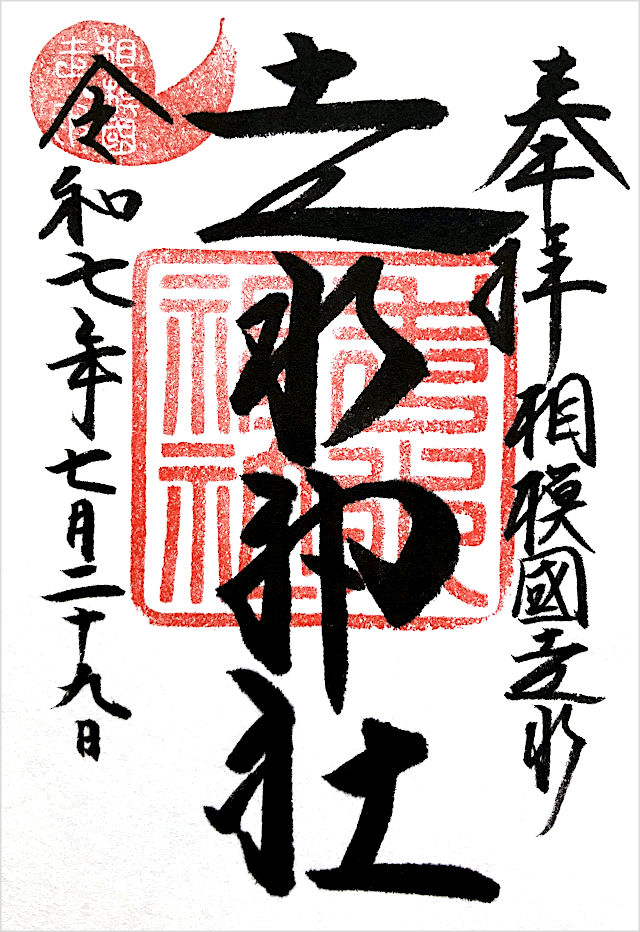 奉拝
相模國走水
走水神社
走水神社
相模國
走水
令和七年七月二十九日